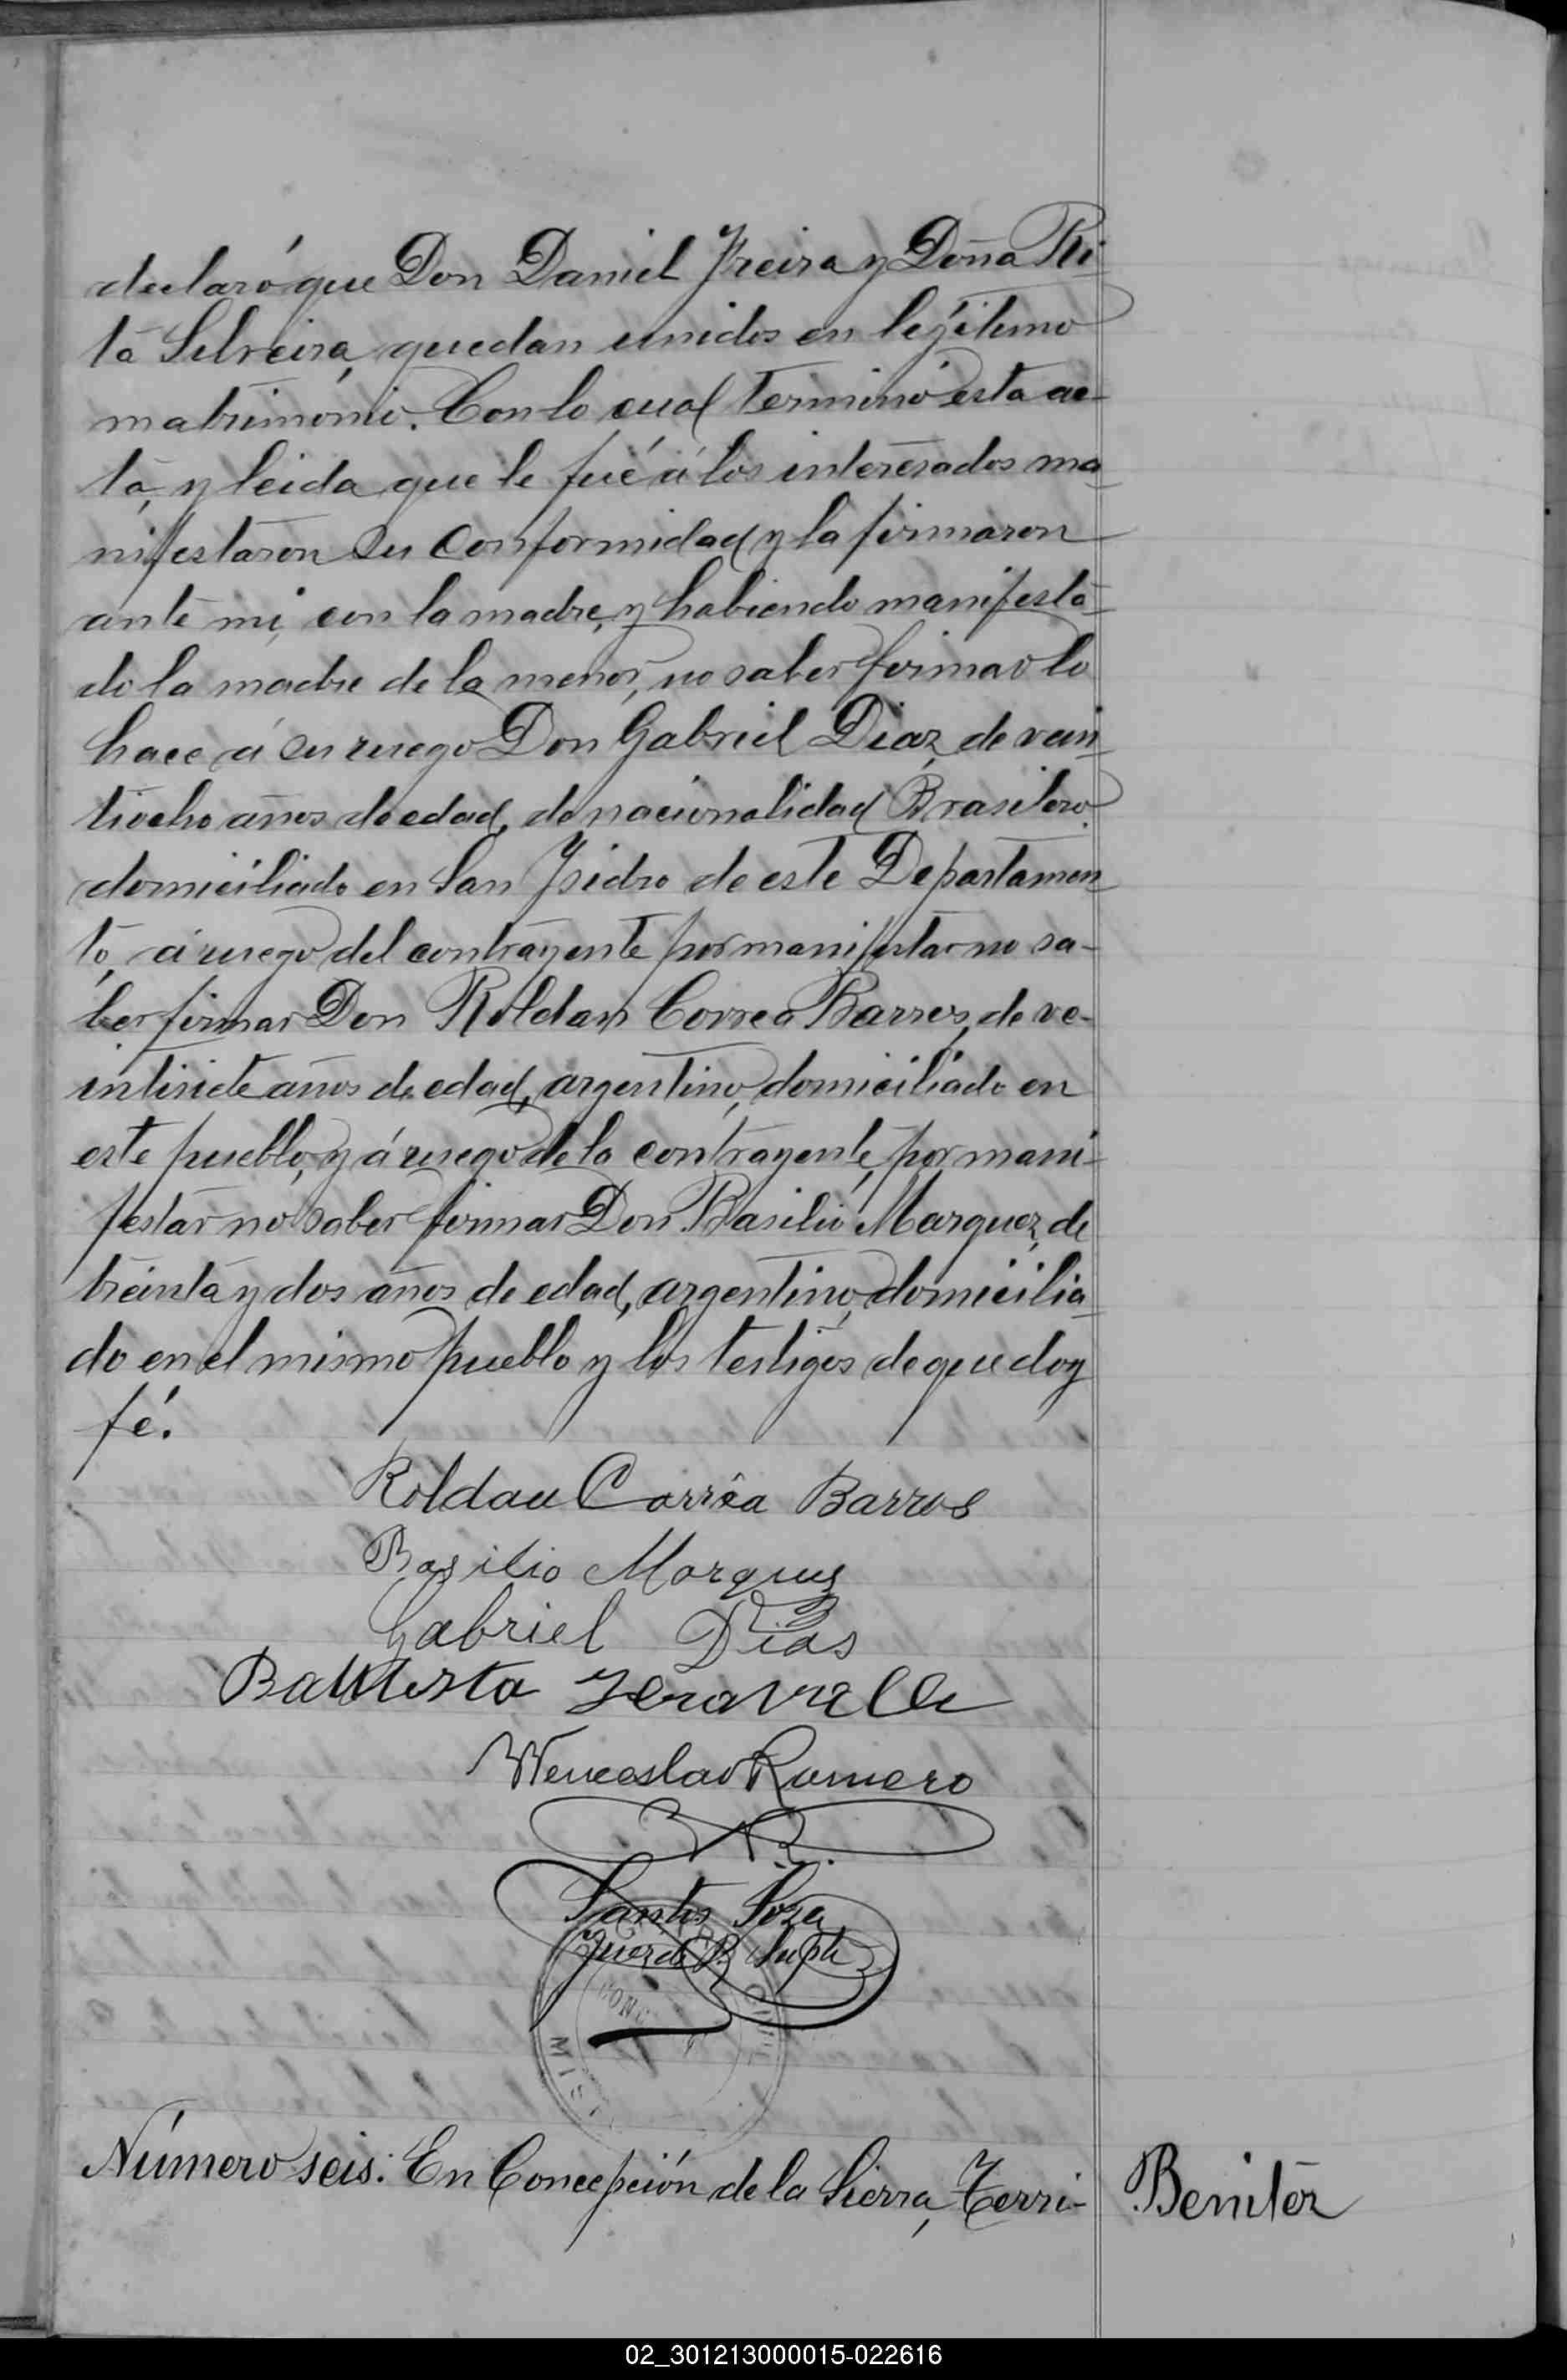 declaró que Don Daniel Freira y Doña Ri-
ta Silveira, quedan unidos en legítimo
matrimónio. Con lo cual terminó esta ac-
ta, y leida que le fué á los interesados ma-
nifestaron su conformidad y la firmaron
ante mi, con la madre, y habiendo manifesta-
do la madre de la menor, no saber firmar lo
hace á su ruego Don Gabriel Diaz, de vein-
tiocho años de edad, de nacionalidad Brasilero
domiciliado en San Ysidro de este Departamen-
to, á ruego del contrayente por manifestar no sa-
ber firmar Don Roldan Correa Barros, de ve-
intisiete años de edad, argentino, domiciliado en
este pueblo, y á ruego de la contrayente, por mani-
festar no saber firmar Don Basilio Marquez, de
treinta y dos años de edad, argentino, domicilia-
do en el mismo pueblo y los testigos de que doy
fé.
Roldan Corrêa Barros
Basilio Marques
Gabriel Dias
Battista
Wenceslao Romero
Santos Soza
Juez de P. Suplte
CIVIL
MIS
Número seis: En Concepción de la Sierra, Terri-
Benitez
02_301213000015-022616